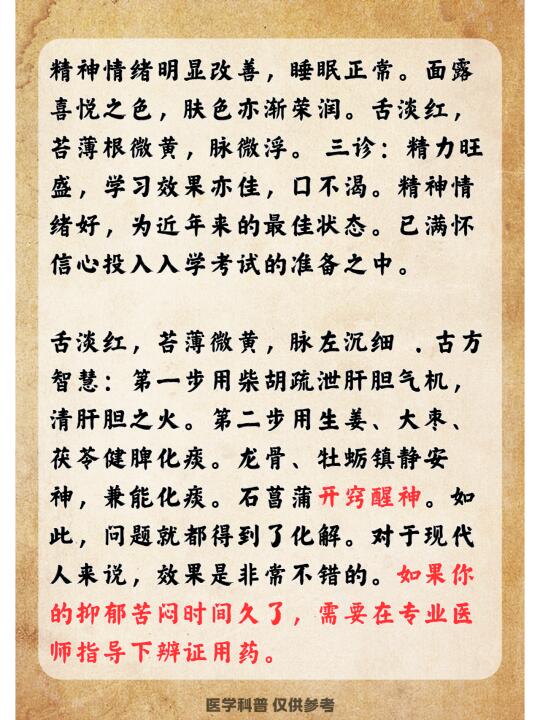 精神情绪明显改善，睡眠正常。面露
喜悦之色，肤色亦渐荣润。舌淡红，
苔薄根微黄，脉微浮。 三诊：精力旺
盛，学习效果亦佳，口不渴。精神情
绪好，为近年来的最佳状态。已满怀
信心投入入学考试的准备之中。
舌淡红，苔薄微黄，脉左沉细 ．古方
智慧：第一步用柴胡疏泄肝胆气机，
清肝胆之火。第二步用生姜、大枣、
茯苓健脾化痰。龙骨、牡蛎镇静安
神，兼能化痰。石菖蒲开窍醒神。如
此，问题就都得到了化解。对于现代
人来说，效果是非常不错的。如果你
的抑郁苦闷时间久了，需要在专业医
师指导下辨证用药。
医学科普 仅供参考